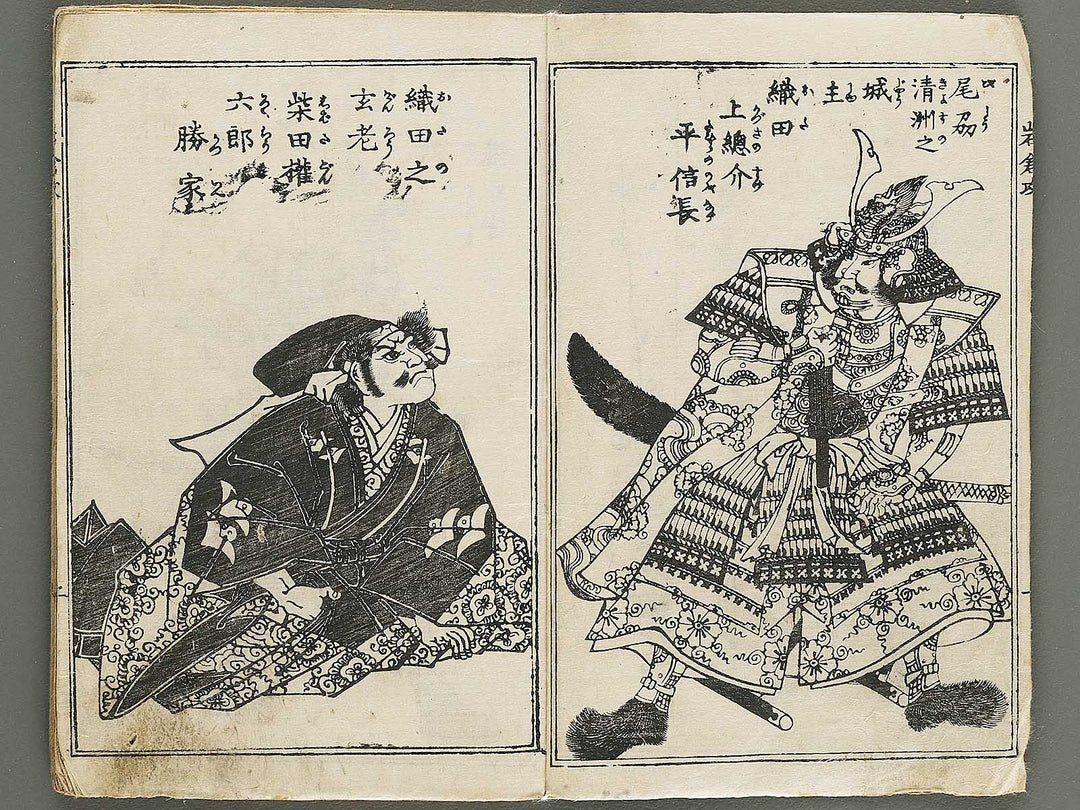 岩倉攻
尾刕
清洲之
城
主
織田
上總介
平信長
織田之
玄老
柴田權
六郎
勝家